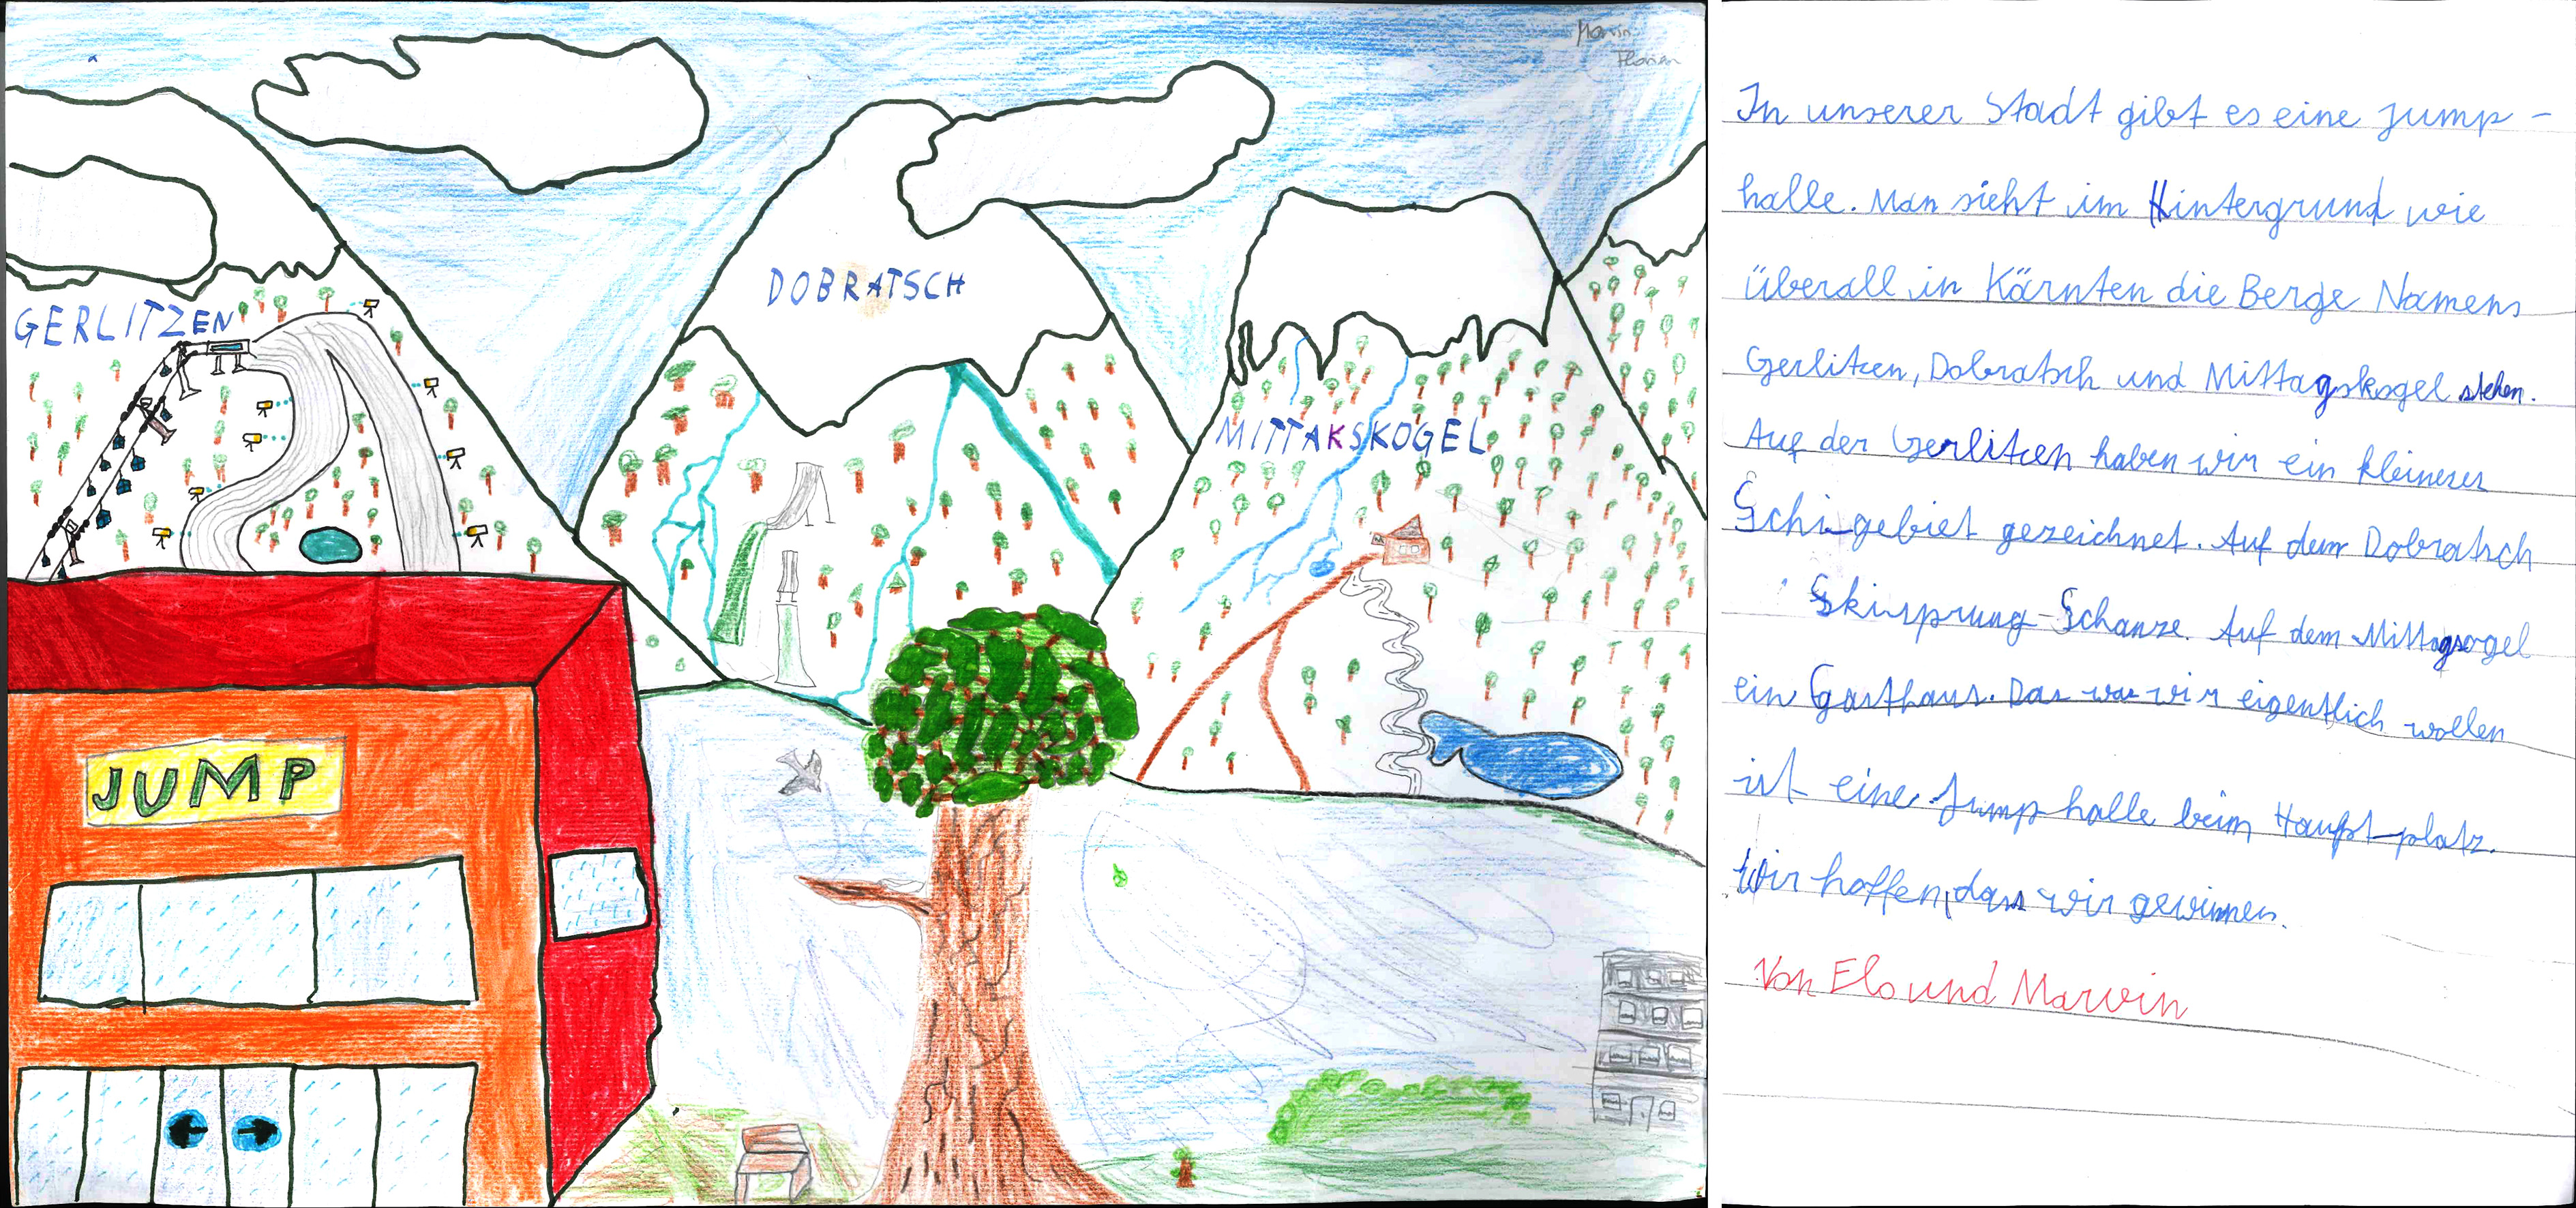 Marvin
Florian
GERLITZEN
DOBRATSCH
MITTAKSKOGEL
JUMP
In unserer Stadt gibt es eine Jump-
halle. Man sieht im Hintergrund wie
überall in Kärnten die Berge Namens
Gerlitzen, Dobratsch und Mittagskogel stehen.
Auf der Gerlitzen haben wir ein kleineres
Schi-gebiet gezeichnet. Auf dem Dobratsch
Skisprung-Schanze. Auf dem Mittagsogel
ein Gasthaus. Das was wir eigentlich wollen
ist eine Jumphalle beim Haupt-platz.
Wir hoffen, dass wir gewinnen.
Von Flo und Marvin